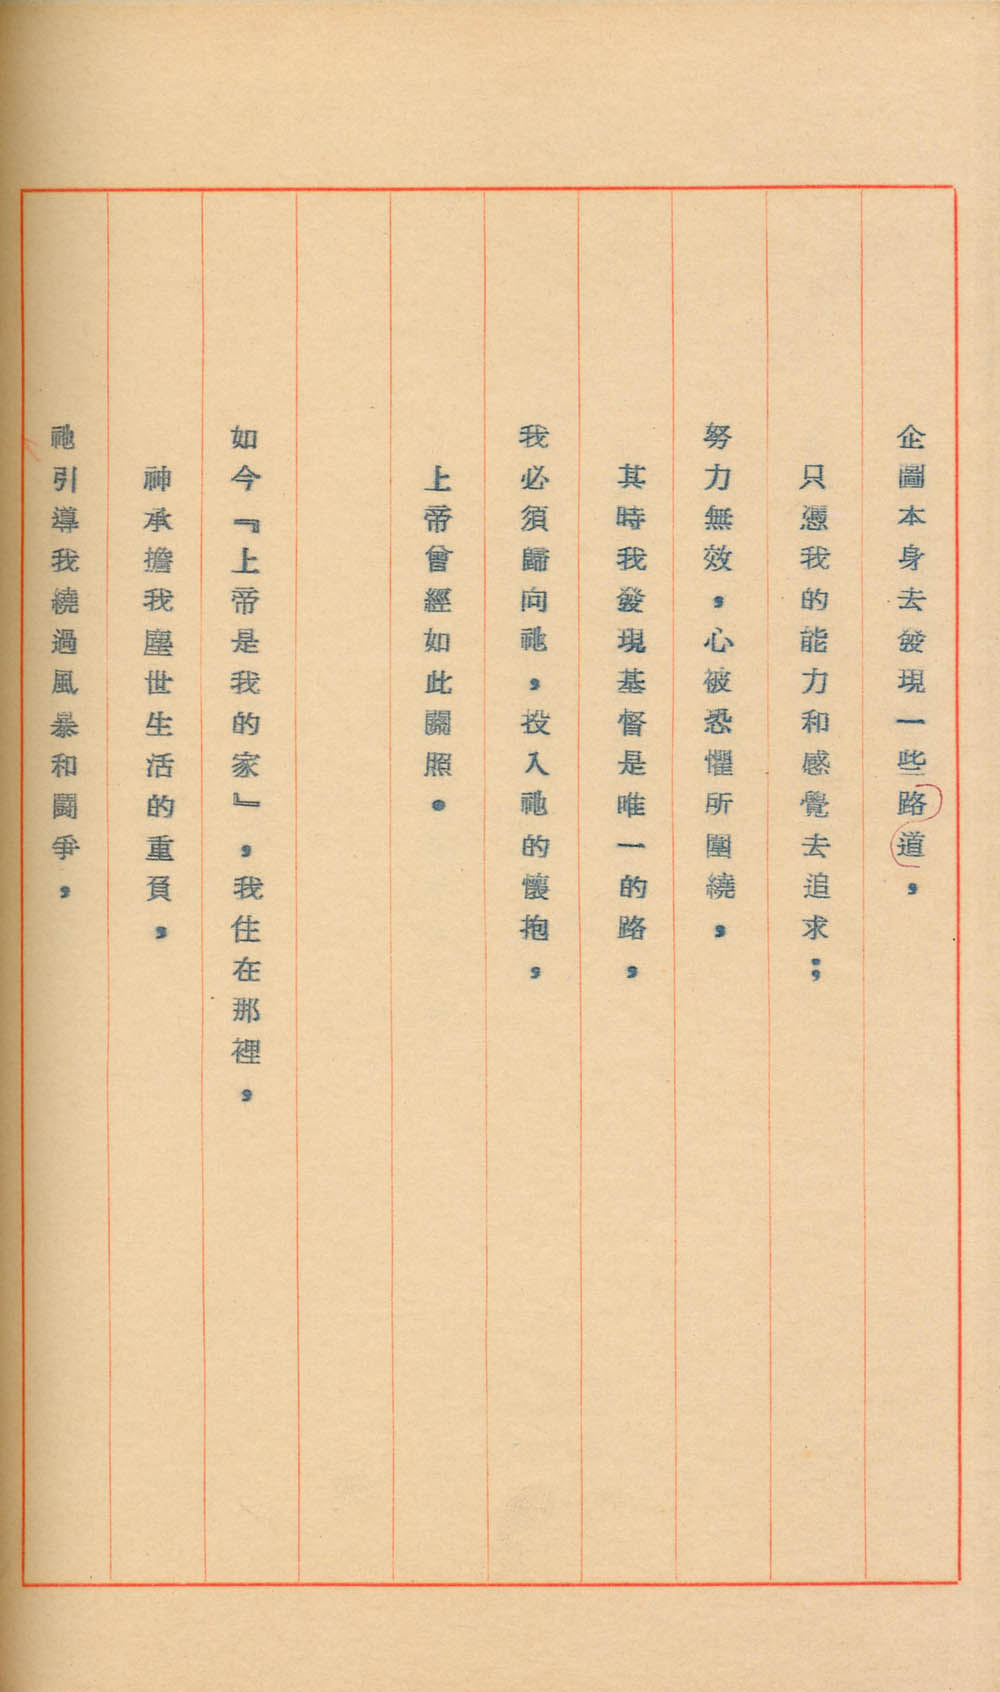 企圖本身去發現一些路道，
只憑我的能力和感覺去追求；
努力無效，心被恐懼所圍繞，
其時我發現基督是唯一的路，
我必須歸向祂，投入祂的懷抱，
上帝曾經如此關照。
如今『上帝是我的家』，我住在那裡，
神承擔我塵世生活的重負，
祂引導我繞過風暴和鬪爭，